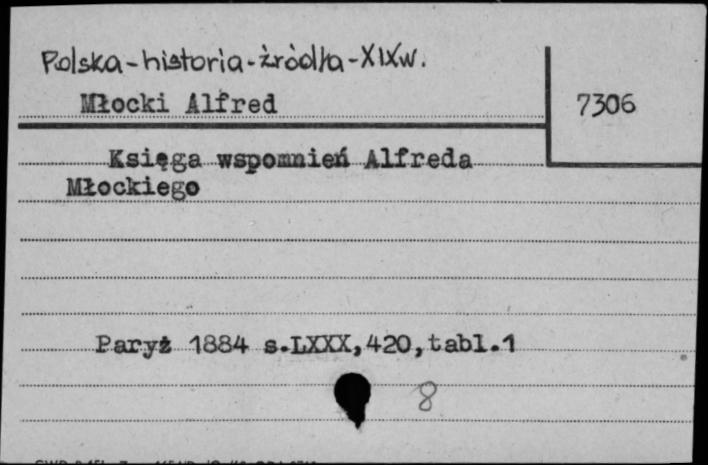 Polska-historia-źródła-XIXw.
Młocki Alfred
7306
Księga wspomnień Alfreda
Młockiego
Paryż 1884 s.LXXX,420,tabl.1
8